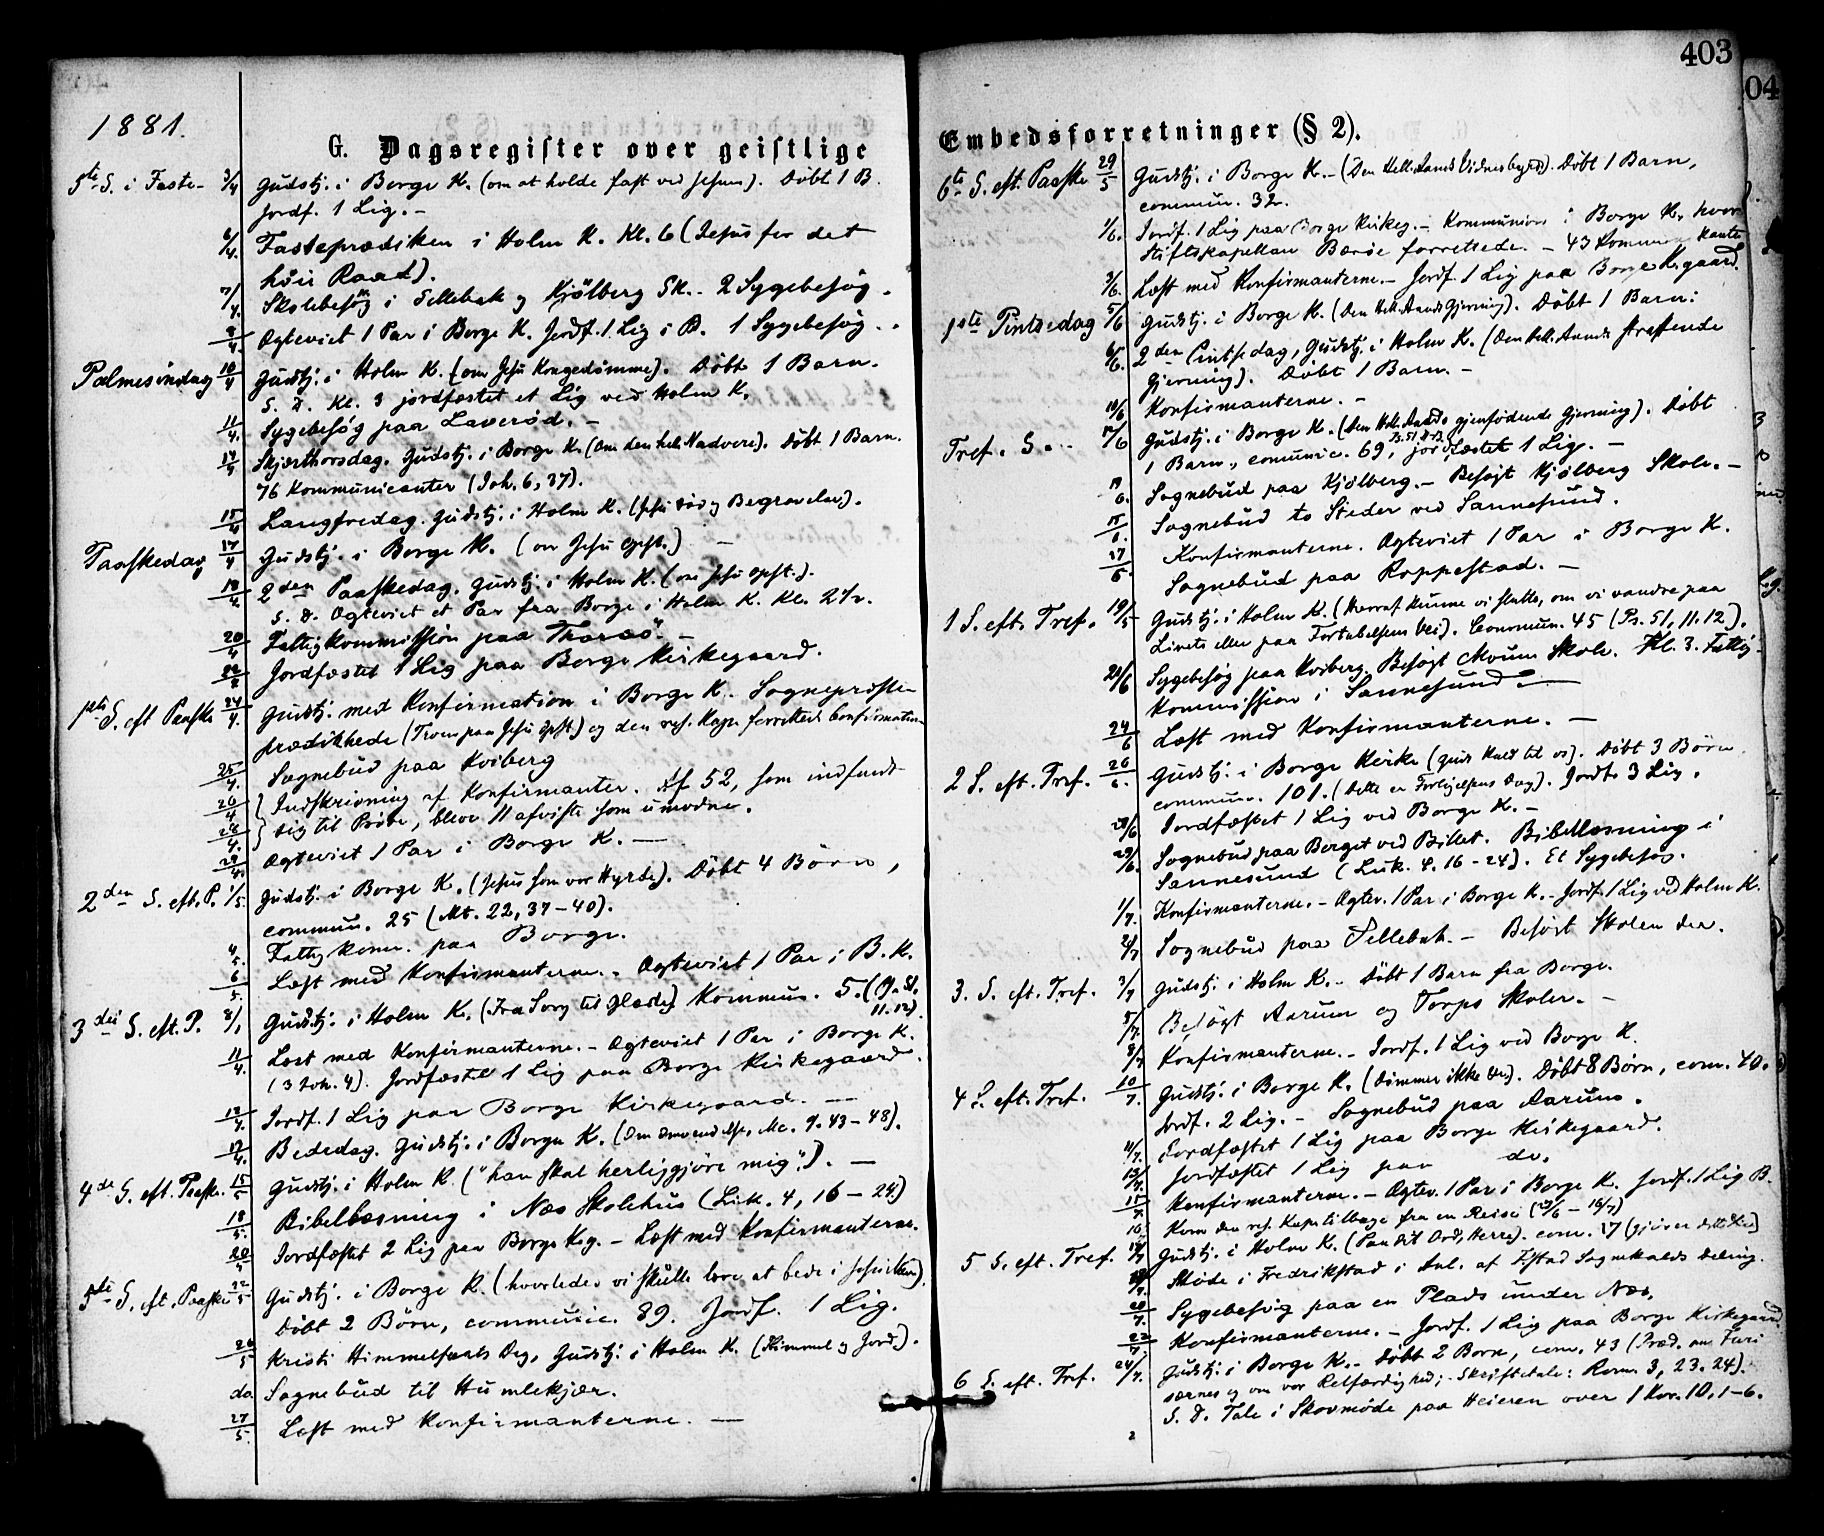 403
04
1881.
G. Dagsregister over geistlige
5te S. i Faste- 3/4 Gudstj. i Borge K. (om at holde fast ved Jesum). Döbt 1 B.
Jordf. 1 Lig. -
6/4. Fasteprædiken i Holm K. Kl. 6 (Jesus for det
höie Raad).
7/4. Skolebesög i Sellebak og Kjölberg Sk. - 2 Sygebesög.
8/4. Ægteviet 1 Par i Borge K. Jordf. 1 Lig i B. 1 Sygebesög.
Palmesöndag 10/4 Gudstj. i Holm K. (om Jesu Kongedömme). Döbt 1 Barn.
S. D. Kl. 3 jordfæstet et Lig ved Holm K.
11/4. Sygebesög paa Laveröd. -
14/4 Skjærthorsdag. Gudstj. i Borge K. (Om den hel. Nadvere). Döbt 1 Barn.
76 Kommunicanter (Joh. 6, 37).
15/4 Langfredag. Gudstj. i Holm K. (Jesu Död og Begravelse).
Paaskedag 17/4 Gudstj. i Borge K. (om Jesu Opst.) -
18/4 2den Paaskedag. Gudstj. i Holm K. (om Jesu Opst.).
S. D. Ægteviet et Par fra Borge i Holm K. Kl. 2½.
20/4 Fattigkommission paa Thorsö. -
Jordfæstet 1 Lig paa Borge Kirkegaard.
1ste S. eft Paaske 24/4. Gudstj. med Konfirmation i Borge K. Sognepræsten
prædikede (Troen paa Jesu Opst.) og den res. Kap. forrettede Confirmation
25/4. Sognebud paa Kviberg
26/4 Indskrivning af Konfirmanter. Af 52, som indfandt
28/4. sig til Pröve, bleve 11 afviste som umodne.
29/4. Ægteviet 1 Par i Borge K. -
2den S. eft. P. 1/5. Gudstj. i Borge K. (Jesus som vor Hyrde). Döbt 4 Börn,
commun. 25 (Mt. 22, 37-40).
4/5. Fattigkomm. paa Borge.
6/5. Læst med Konfirmanterne. - Ægteviet 1 Par i B. K.
3die S. eft. P. 8/ Gudstj. i Holm K. (Fra Sorg til Glæde) Kommun. 5. (
11. 12).
11/4. Læst med Konfirmanterne. - Ægteviet 1 Par i Borge K.
(3 Joh. 4). Jordfæstet 1 Lig paa Borge Kirkegaard.
Jordf. 1 Lig paa Borge Kirkegaard. -
Bededag. Gudstj. i Borge K. (Om Mc. 9. 43-48).
4de S. eft. Paaske. 15/5 Gudstj. i Holm K. ("han skal herliggjöre mig"). -
18/5. Bibellæsning i Næs Skolehus (Luk. 4, 16-24)
20/5 Jordfæstet 2 Lig paa Borge Keg. - Læst med Konfirmanterne.
5te S. eft. Paaske 22/5 Gudstj. i Borge K. (hvorledes vi skulle lære at bede i Jesu Navn),
Döbt 2 Börn, communic. 89. Jordf. 1 Lig.
26/5 Kristi Himmelfarts Dag, Gudstj. i Holm K. (Himmel og Jord).
do Sognebud til Humlekjær.
27/5. Læst med Konfirmanterne. -
Embedsforretninger (§ 2).
6te S. eft. Paaske 29/5 Gudstj. i Borge K. - (Den Hell. Aands Vidnesbyrd). Döbt 1 Barn,
commun. 32.
1/6. Jordf. 1 Lig paa Borge Kirkeg. - Kommunion i Borge K, hvor
Stiftskapellan Bæröe forrettede. - 43 Kommunikanter
3/6. Læst med Konfirmanterne. - Jordf. 1 Lig paa Borge K.gaard.
1ste Pintsedag 5/6 Gudstj. i Borge K. (Den Hell. Aands Gjerning). Döbt 1 Barn.
6/6. 2den Pintsedag, Gudstj. i Holm K. (Den Hell. Aands straffende
Gjerning). Döbt 1 Barn. -
10/6 Konfirmanterne. -
Tref. S. 12/6 Gudstj. i Borge K. (Den Hell. Aands gjenfödende Gjerning). Döbt
1 Barn, comunic. 69, jordfæstet 1 Lig. -
Sognebud paa Kjölberg. - Besögt Kjölberg Skole. -
15/6. Sognebud to Steder ved Sannesund.
17/6. Konfirmanterne. Ægteviet 1 Par i Borge K.
Sognebud paa Roppestad. -
1 S. eft. Tref. 19/5 Gudstj. i Holm K. (Hvoraf kunne vi slutte, om vi vandre paa
Livets eller paa Fortabelsens Vei). Commun. 45 (Ps. 51, 11. 12).
Sygebesög paa Kviberg. Besögt Moum Skole. Kl. 3. Fattig-
kommission i Sannesund. -
24/6 Læst med Konfirmanterne. -
2 S. eft. Tref. 26/6. Gudstj. i Borge Kirke (Guds Kald til os). Döbt 3 Börn
commun. 101. (Dette er Forligelsens Dag). Jordf. 3 Lig.
28/6 Jordfæstet 1 Lig ved Borge K. -
29/6. Sognebud paa Berget ved Billet. Bibellæsning i
Sannesund (Luk. 4. 16-24). Et Sygebesög.
1/7. Konfirmanterne. - Ægtev. 1 Par i Borge K. - Jordf. 1 Lig ved Holm K.
2/7 Sognebud paa Sellebak. - Besögt Skolen der.
3. S. eft. Tref. 3/7 Gudstj. i Holm K. - Döbt 1 Barn fra Borge.
5/7. Besögt Aarum og Torps Skoler. -
8/7 Konfirmanterne. - Jordf. 1 Lig ved Borge K.
4 S. eft. Tref. 10/7. Gudstj. i Borge K. (Dömmer ikke ). Döbt 8 Börn, com. 40.
Jordf. 2 Lig. - Sognebud paa Aarum.
11/7. Jordfæstet 1 Lig paa Borge Kirkegaard.
13/7. Jordfæstet 1 Lig paa do.
15/7. Konfirmanterne. - Ægtev. 1 Par i Borge K. Jordf. 1 Lig B.
16 Kom den res. Kap. tilbage fra en Reise ( - 16/7)
5 S. eft. Tref. 17/7 Gudstj. i Holm K. (Paa Dit Ord, Herre). com. 17
Möde i Fredrikstad i Anl. af F.stad Sognekalds Deling.
20/7. Sygebesög paa en Plads under Næs.
22/7. Konfirmanterne. - Jordf. 1 Lig paa Borge Kirkegaard
6 S. eft. Tref. 24/7. Gudstj. i Borge K. - Döbt 2 Börn, com. 43 (Præd. om Fari
sæernes og om vor Retfærdighed; - Skriftetale: Rom. 3, 23. 24).
S. D. Tale i Skovmöde paa Heieren over 1 Kor. 10, 1-6.